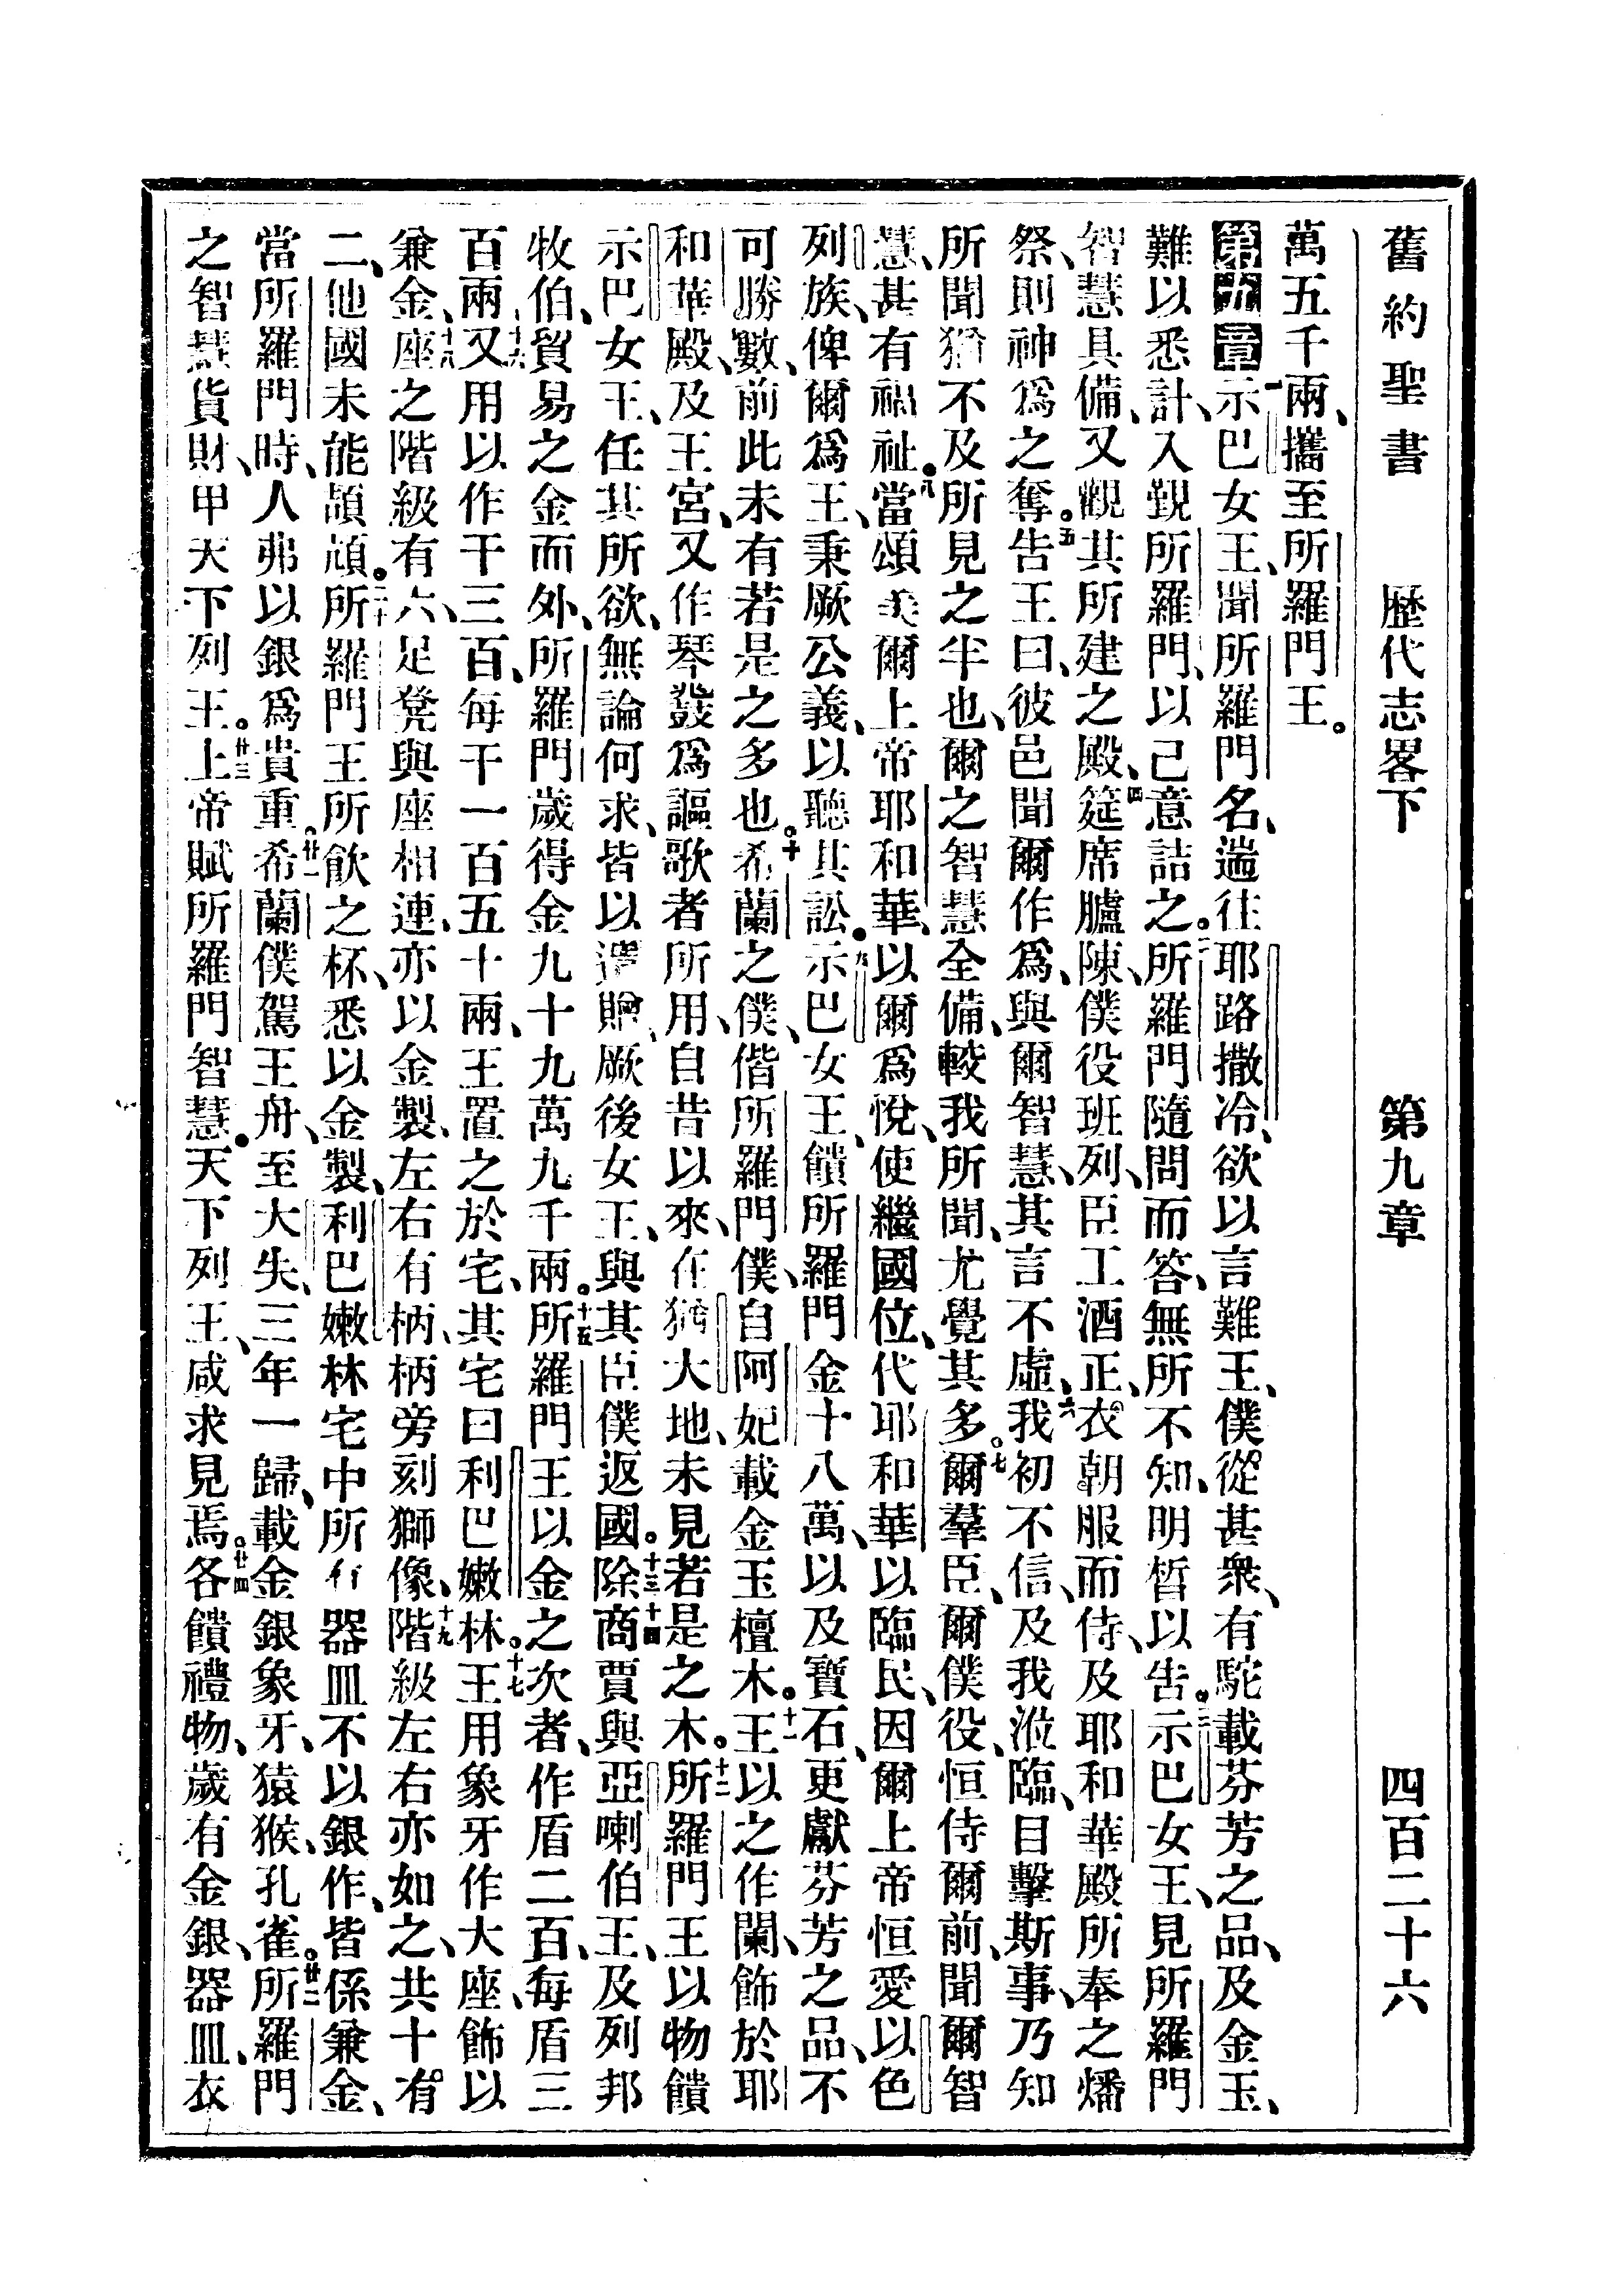 舊約聖書 歷代志畧下 第九章 四百二十六
萬五千兩、攜至所羅門王。
第九章一示巴女王、聞所羅門名、遄往耶路撒冷、欲以言難王、僕從甚衆、有駝載芬芳之品、及金玉、
難以悉計、入覲所羅門、以己意詰之。二所羅門隨問而答、無所不知、明晳以告。三示巴女王、見所羅門
智慧具備、又觀其所建之殿、四筵席臚陳、僕役班列、臣工酒正、衣朝服而侍、及耶和華殿所奉之燔
祭、則神爲之奪。五告王曰、彼邑聞爾作爲、與爾智慧、其言不虛、六我初不信、及我涖臨、目擊斯事、乃知
所聞猶不及所見之半也、爾之智慧全備、較我所聞、尤覺其多。七爾羣臣、爾僕役、恒侍爾前、聞爾智
慧、甚有福祉。八當頌美爾上帝耶和華、以爾爲悅、使繼國位、代耶和華以臨民、因爾上帝恒愛以色
列族、俾爾爲王、秉厥公義、以聽其訟。九示巴女王、饋所羅門金十八萬、以及寶石、更獻芬芳之品、不
可勝數、前此未有若是之多也。十希蘭之僕、偕所羅門僕、自阿妃載金玉檀木。十一王以之作闌、飾於耶
和華殿、及王宮、又作琴鼗、爲謳歌者所用、自昔以來、在猶大地、未見若是之木。十二所羅門王以物饋
示巴女王、任其所欲、無論何求、皆以遺贈、厥後女王、與其臣僕返國。十三除商十四賈與亞喇伯王、及列邦
牧伯、貿易之金而外、所羅門歲得金九十九萬九千兩。十五所羅門王以金之次者、作盾二百、每盾三
百兩、十六又用以作干三百、每干一百五十兩、王置之於宅、其宅曰利巴嫩林。十七王用象牙作大座、飾以
兼金、十八座之階級有六、足凳與座相連、亦以金製、左右有柄、柄旁刻獅像、十九階級左右亦如之、共十有
二、他國未能頡頏。二十所羅門王所飲之杯、悉以金製、利巴嫩林宅中所有器皿、不以銀作、皆係兼金、
當所羅門時、人弗以銀爲貴重。廿一希蘭僕駕王舟、至大失、三年一歸、載金銀象牙、猿猴、孔雀。廿二所羅門
之智慧貨財、甲天下列王。廿三上帝賦所羅門智慧、天下列王、咸求見焉。廿四各饋禮物、歲有金銀、器皿、衣